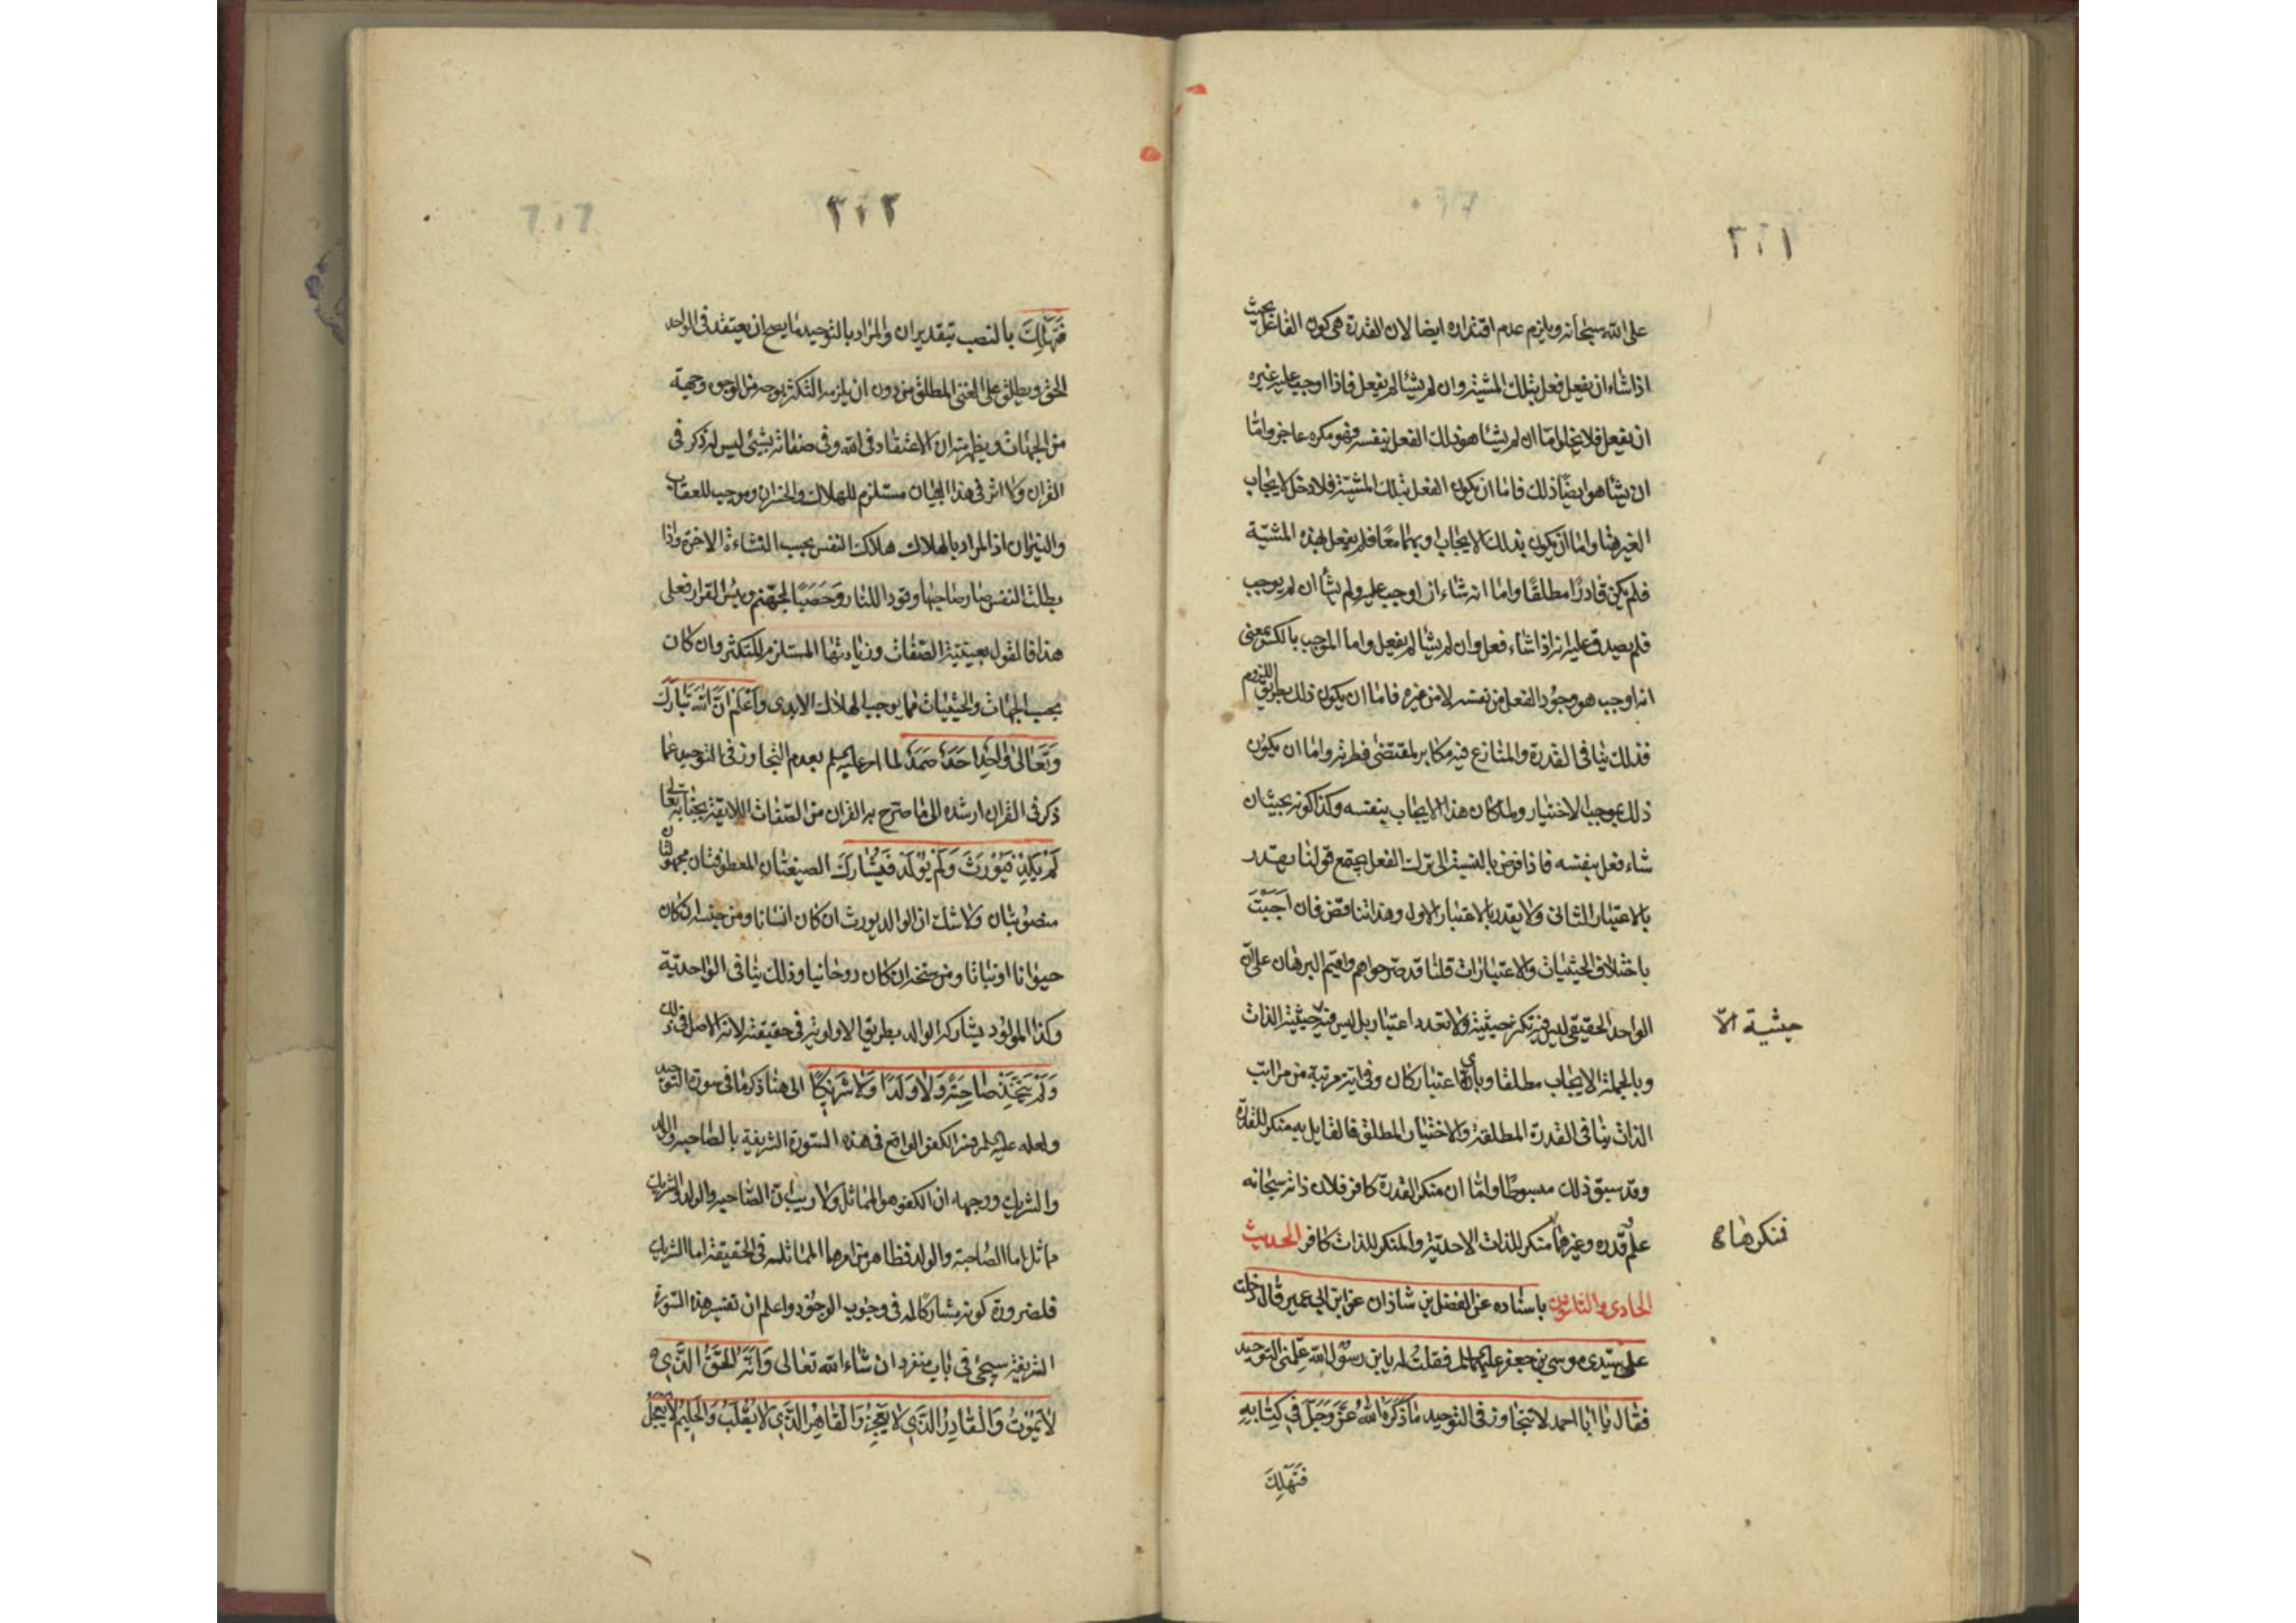 ٣٠١
على الله سبحانه ويلزم عدم اقتداره ايضا لان القدرة هي كون الفاعل بحيث
اذا شاء ان يفعل فعل بتلك المشية وان لم يشأ لم يفعل فاذا اوجب عليه غيره
ان يفعل فلا يخلو اما ان لم يشأ هو ذلك الفعل بنفسه فهو مكره عاجز واما
ان يشا هو ايضا ذلك فاما ان يكون الفعل بتلك المشية فلا دخل لايجاب
الغير هنا واما ان يكون بذلك الايجاب او بهما معا فلم يفعل بهذه المشية
فلم يكن قادرا مطلقا واما انه شاء ان اوجب عليه ولم يشأ ان لم يوجب
فلم يصدق عليه انه اذا شاء فعل وان لم يشأ لم يفعل واما الموجب بالكسر بمعنى
انه اوجب هو وجود الفعل من نفسه لا من غيره فاما ان يكون ذلك بطريق اللزوم
فذلك ينافى القدرة والمنازع فيه مكابر لمقتضى فطرته واما ان يكون
ذلك بموجب الاختيار ولما كان هذا الايجاب بنفسه وكذا كونه بحيث ان
شاء فعل بنفسه فاذا فرض بالنسبة الى ترك الفعل يجتمع قولنا يقدر
بالاعتبار الثانى ولا يقدر بالاعتبار الاول وهذا تناقض فان اَجَبْتَ
باختلاف الحيثيات والاعتبارات قلنا قد صرحوا هم واقيم البرهان على انّ
الواحد الحقيقى ليس فيه تكثر حيثية ولا تعدد اعتبار بل ليس فيه حيثية الذات
حيثية الّا
وبالجملة الايجاب مطلقا وباى اعتبار كان وفى اية مرتبة من مراتب
الذات ينافى القدرة المطلقة والاختيار المطلق فالقايل به منكر للقدرة
وقد سبق ذلك مبسوطا واما ان منكر القدرة كافر فلان ذاته سبحانه
علم وقدره وغيرهما منكر للذات الاحدية والمنكر للذات كافر الحديث
فمنكرهما
الحادى والثلاثون باسناده عن الفضل بن شاذان عن ابن ابى عمير قال دخلت
على سيدى موسى بن جعفر عليهما السلم فقلت له يا بن رسول الله علّمنى التوحيد
فقال يا ابا احمد لا تتجاوز فى التوحيد ما ذَكَرَهُ اللهُ عَزَّ وَجَلَّ فى كِتابِهِ
فَتَهْلِكَ
٣٠٢
فَتَهْلِكَ بالنصب بتقدير ان والمراد بالتوحيد ما يصح ان يعتقد فى الواحد
الحق ويطلق على الغنى المطلق من دون ان يلزمه التكثر بوجه من الوجوه وجهة
من الجهات ويظهر منه ان الاعتقاد فى الله وفى صفاته بشىء ليس له ذكر فى
القران ولا اثر فى هذا البيان مستلزم للهلاك والخسران وموجب للعقاب
والنيران اذ المراد بالهلاك هلاك النفس بحسب النشاءة الاخرة واذا
بطلت النفس صار صاحبها وقودا للنار وَحَصَبًا لجهنم وبئس القرار فعلى
هذا فالقول بعينية الصفات وزيادتها المستلزم للتكثر وان كان
بحسب الجهات والحيثيات مما يوجب الهلاك الابدى وَاَعْلَمْ اَنَّ اللهَ تَبارَكَ
وَتَعالى واحِدٌ اَحَدٌ صَمَدٌ لما امر عليه السلم بعدم التجاوز فى التوحيد عما
ذكر فى القران ارشده الى ما صرح به القران من الصفات اللايقة بجنابه تعالى
لَمْ يَلِدْ فَيُورَثَ وَلَمْ يُولَدْ فَيُشارَكَ الصيغتان المعطوفتان مجهولتان
منصوبتان ولا شك ان الوالد يورث ان كان انسانا ومن جنسه ان كان
حيوانا او نباتا ومن سنخه ان كان روحانيا وذلك ينافى الواحدية
وكذا المولود يشاركه الوالد بطريق الاولوية فى حقيقته لانه الاصل فى ذلك
وَلَمْ يَتَّخِذْ صاحِبَةً وَلا وَلَدًا وَلا شَريكًا الى هنا ذكر ما فى سورة التوحيد
ولعله عليه السلم فسر الكفو الواقع فى هذه السورة الشريفة بالصاحبة والولد
والشريك ووجهه ان الكفو هو المماثل ولا ريب ان الصاحبة والولد والشريك
مماثل اما الصاحبة والولد فظاهر من امرهما المماثلة فى الحقيقة اما الشريك
فلضرورة كونه مشاركا له فى وجوب الوجود واعلم ان تفسير هذه السورة
الشريفة سيجئ فى باب منفرد ان شاء الله تعالى وَاَنَّهُ الحَىُّ الَّذى
لا يَموُتُ وَالْقادِرُ الَّذى لا يَعْجِزُ وَالْقاهِرُ الَّذى لا يُغْلَبُ وَالْحَليمُ لا يَعْجَلُ